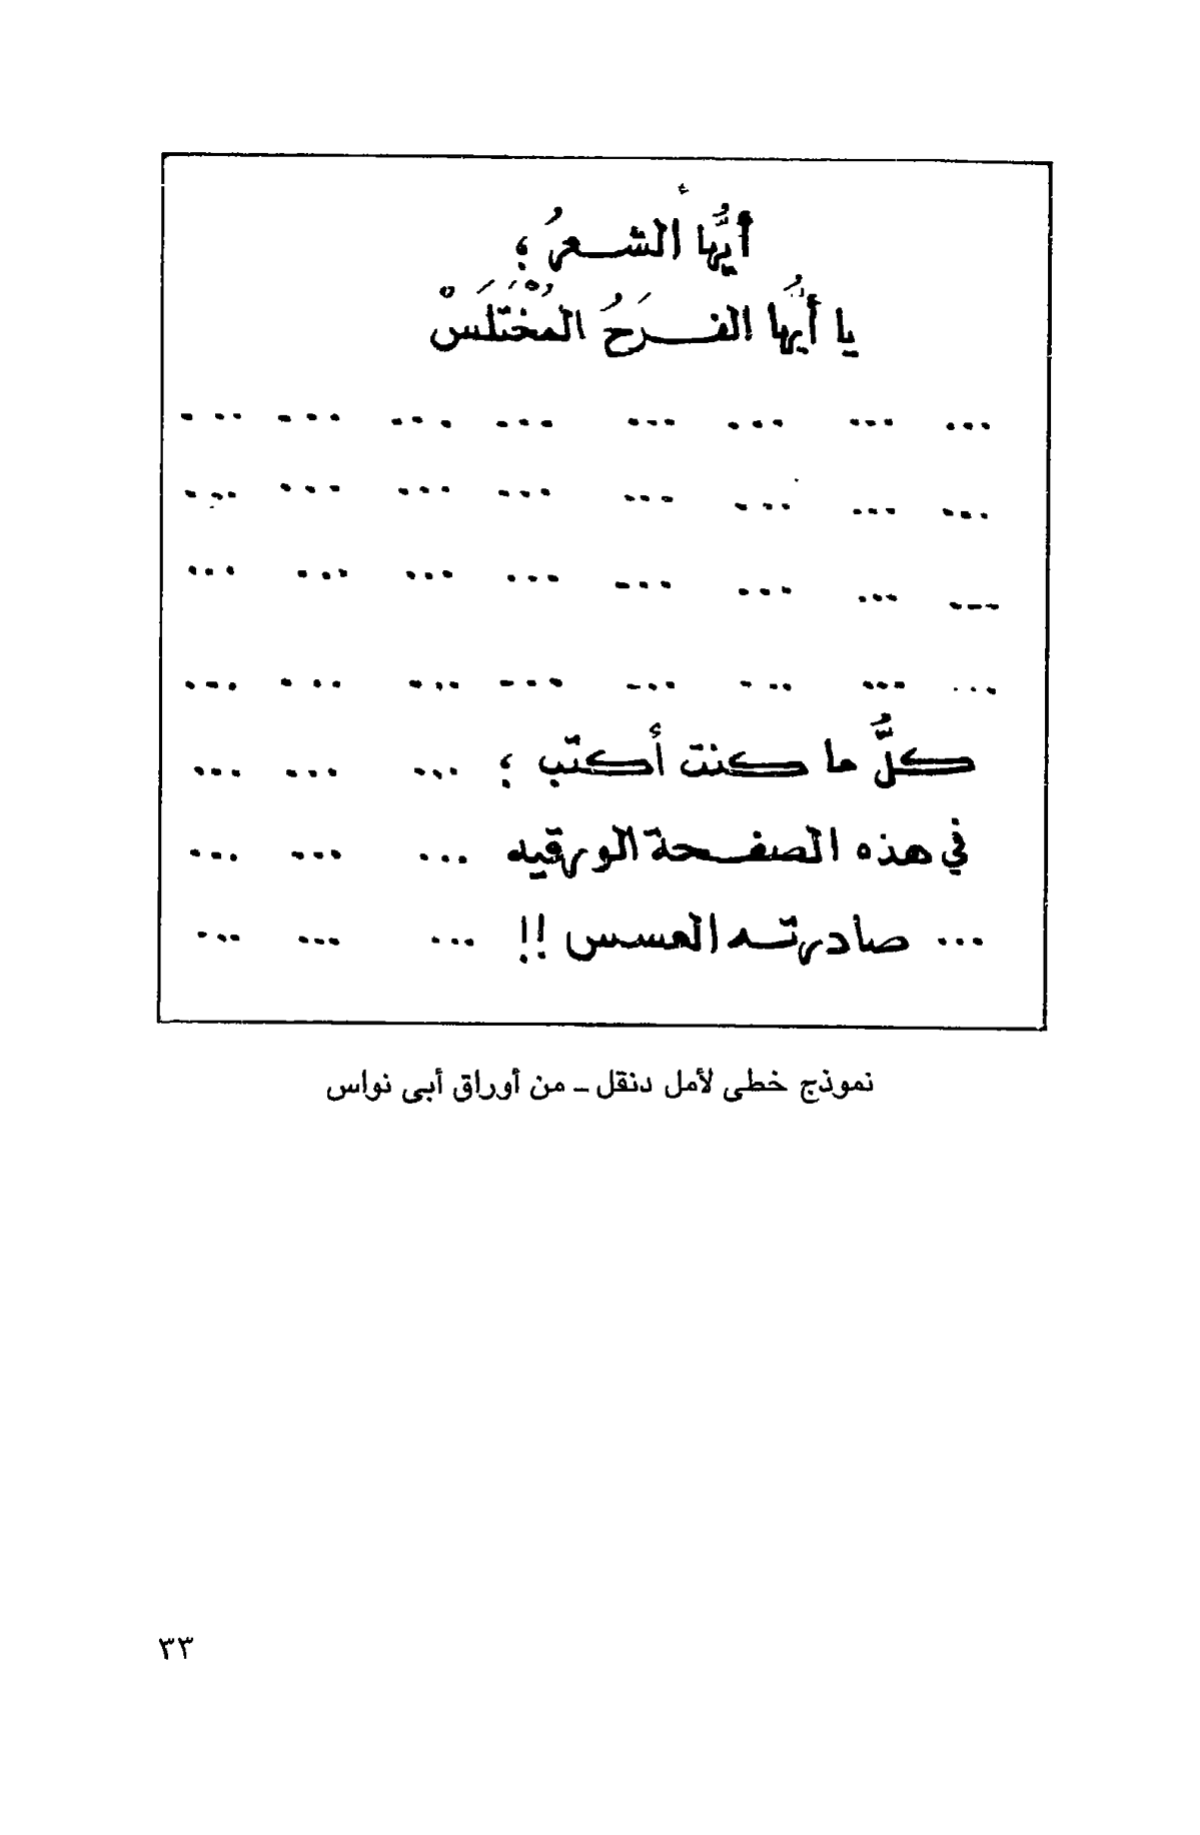 أيُّها الشعرُ ؛
يا أيُّها الفَرَحُ المُخْتَلَسْ
... ... ... ... ... ... ... ...
... ... ... ... ... ... ... ...
... ... ... ... ... ... ... ...
... ... ... ... ... ... ... ...
كلُّ ما كنت أكتب ؛ ... ... ...
في هذه الصفحة الورقيه ... ... ...
... صادرته العسس !! ... ... ...
نموذج خطى لأمل دنقل ـ من أوراق أبى نواس
٣٣